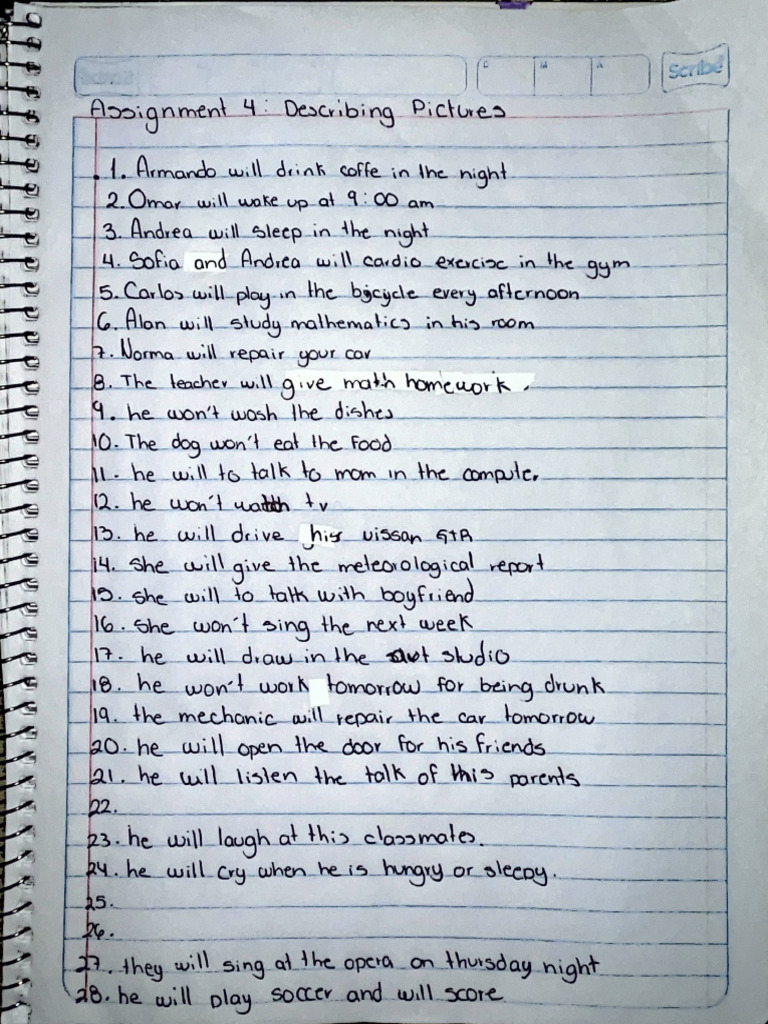 Scribe
Assignment 4: Describing Pictures
1. Armando will drink coffe in the night
2. Omar will wake up at 9:00 am
3. Andrea will sleep in the night
4. Sofia and Andrea will cardio exercise in the gym
5. Carlos will play in the bicycle every afternoon
6. Alan will study mathematics in his room
7. Norma will repair your car
8. The teacher will give math homework.
9. he won't wash the dishes
10. The dog won't eat the food
11. he will to talk to mom in the compute.
12. he won't watch tv
13. he will drive his nissan GTR
14. she will give the meteorological report
15. she will to talk with boyfriend
16. she won't sing the next week
17. he will draw in the art studio
18. he won't work tomorrow for being drunk
19. the mechanic will repair the car tomorrow
20. he will open the door for his friends
21. he will listen the talk of this parents
22.
23. he will laugh at this classmates.
24. he will cry when he is hungry or sleepy.
25.
26.
27. they will sing at the opera on thursday night
28. he will play soccer and will score